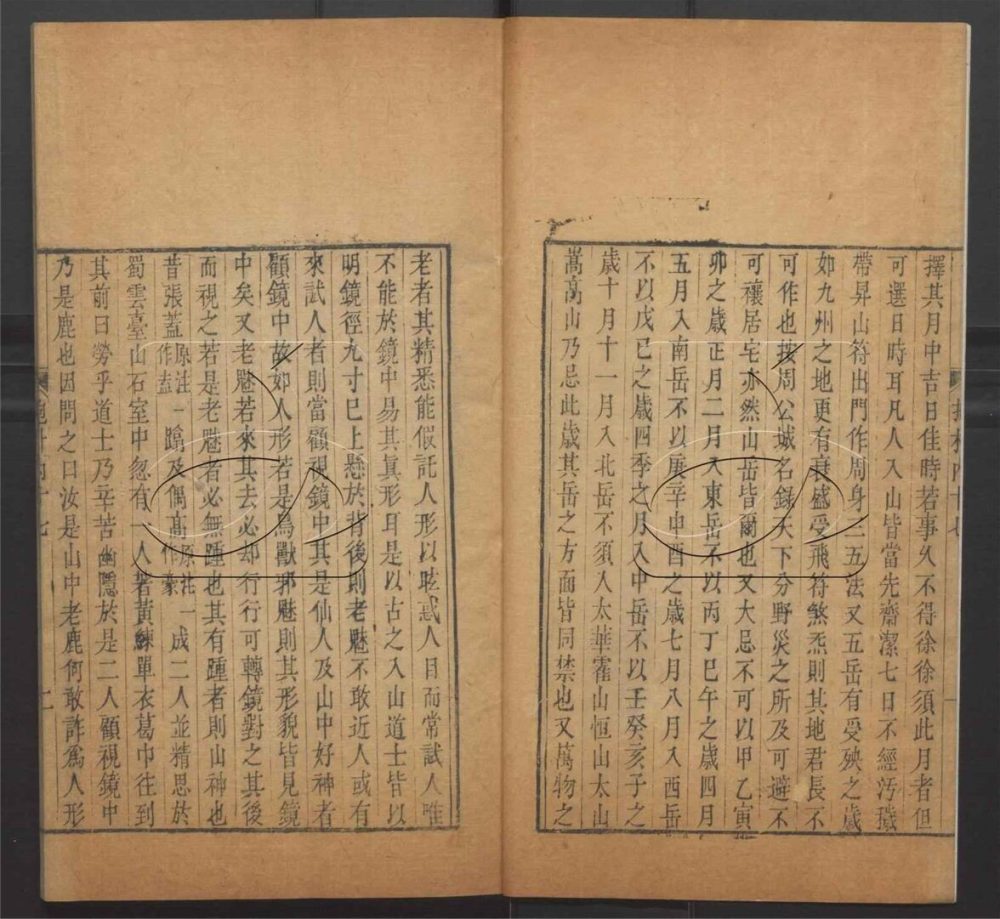 擇其月中吉日佳時若事久不得徐徐須此月者但
可選日時耳凡人入山皆當先齋潔七日不經汚穢
帶昇山符出門作周身三五法又五岳有受殃之歲
如九州之地更有衰盛受飛符煞炁則其地君長不
可作也按周公城名錄天下分野災之所及可避不
可禳居宅亦然山岳皆爾也又大忌不可以甲乙寅
卯之歲正月二月入東岳不以丙丁巳午之歲四月
五月入南岳不以庚辛申酉之歲七月八月入西岳
不以戊已之歲四季之月入中岳不以壬癸亥子之
歲十月十一月入北岳不須入太華霍山恒山太山
嵩高山乃忌此歲其岳之方面皆同禁也又萬物之
老者其精悉能假託人形以眩惑人目而常試人唯
不能於鏡中易其真形耳是以古之入山道士皆以
明鏡徑九寸已上懸於背後則老魅不敢近人或有
來試人者則當顧視鏡中其是仙人及山中好神者
顧鏡中故如人形若是鳥獸邪魅則其形貌皆見鏡
中矣又老魅若來其去必却行行可轉鏡對之其後
而視之若是老魅者必無踵也其有踵者則山神也
昔張蓋原注一作盍蹹及偶高原注一作豪成二人並精思於
蜀雲臺山石室中忽有一人著黃練單衣葛巾往到
其前曰勞乎道士乃辛苦幽隱於是二人顧視鏡中
乃是鹿也因問之曰汝是山中老鹿何敢詐爲人形